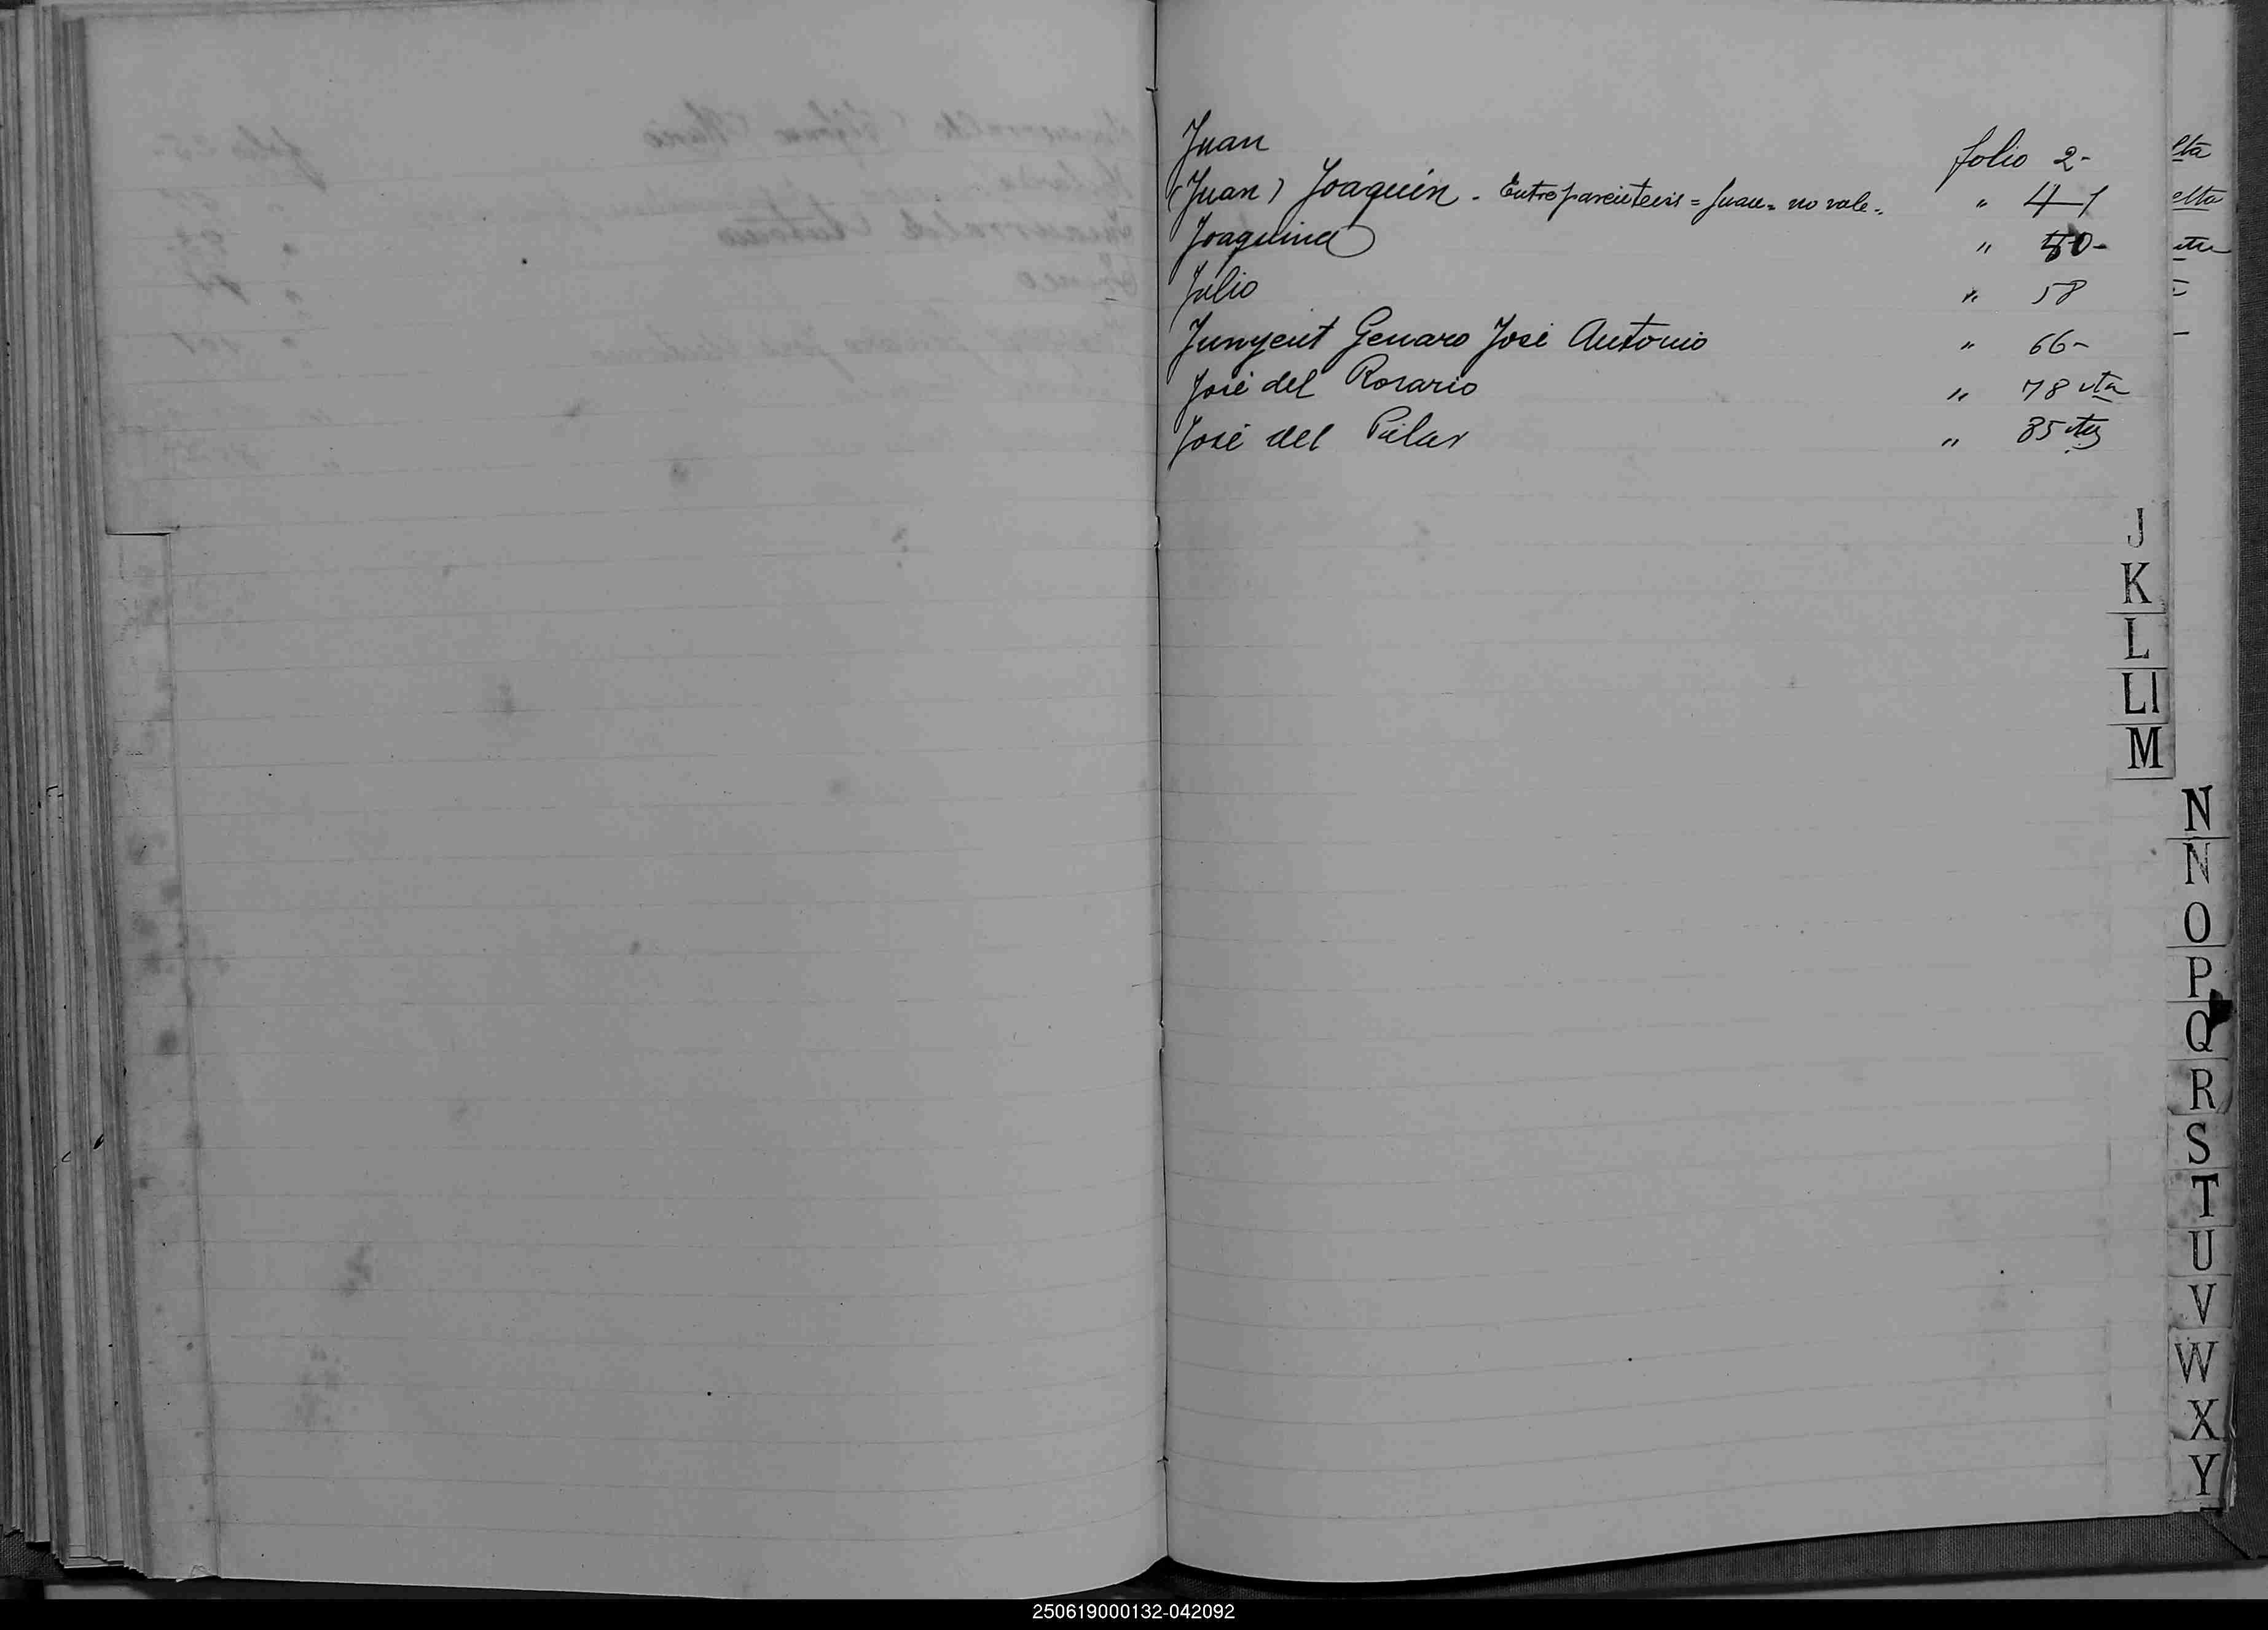 Juan folio 2-
(Juan) Joaquín - Entreparéntesis = Juan = no vale - " 41
Joaquina " 50-
Julio " 58
Junyent Genaro José Antonio " 66-
José del Rosario " 78 vta
José del Pilar " 85 vta
elta
elta
vta
J
K
L
Ll
M
N
N
O
P
Q
R
S
T
U
V
W
X
Y
250619000132-042092